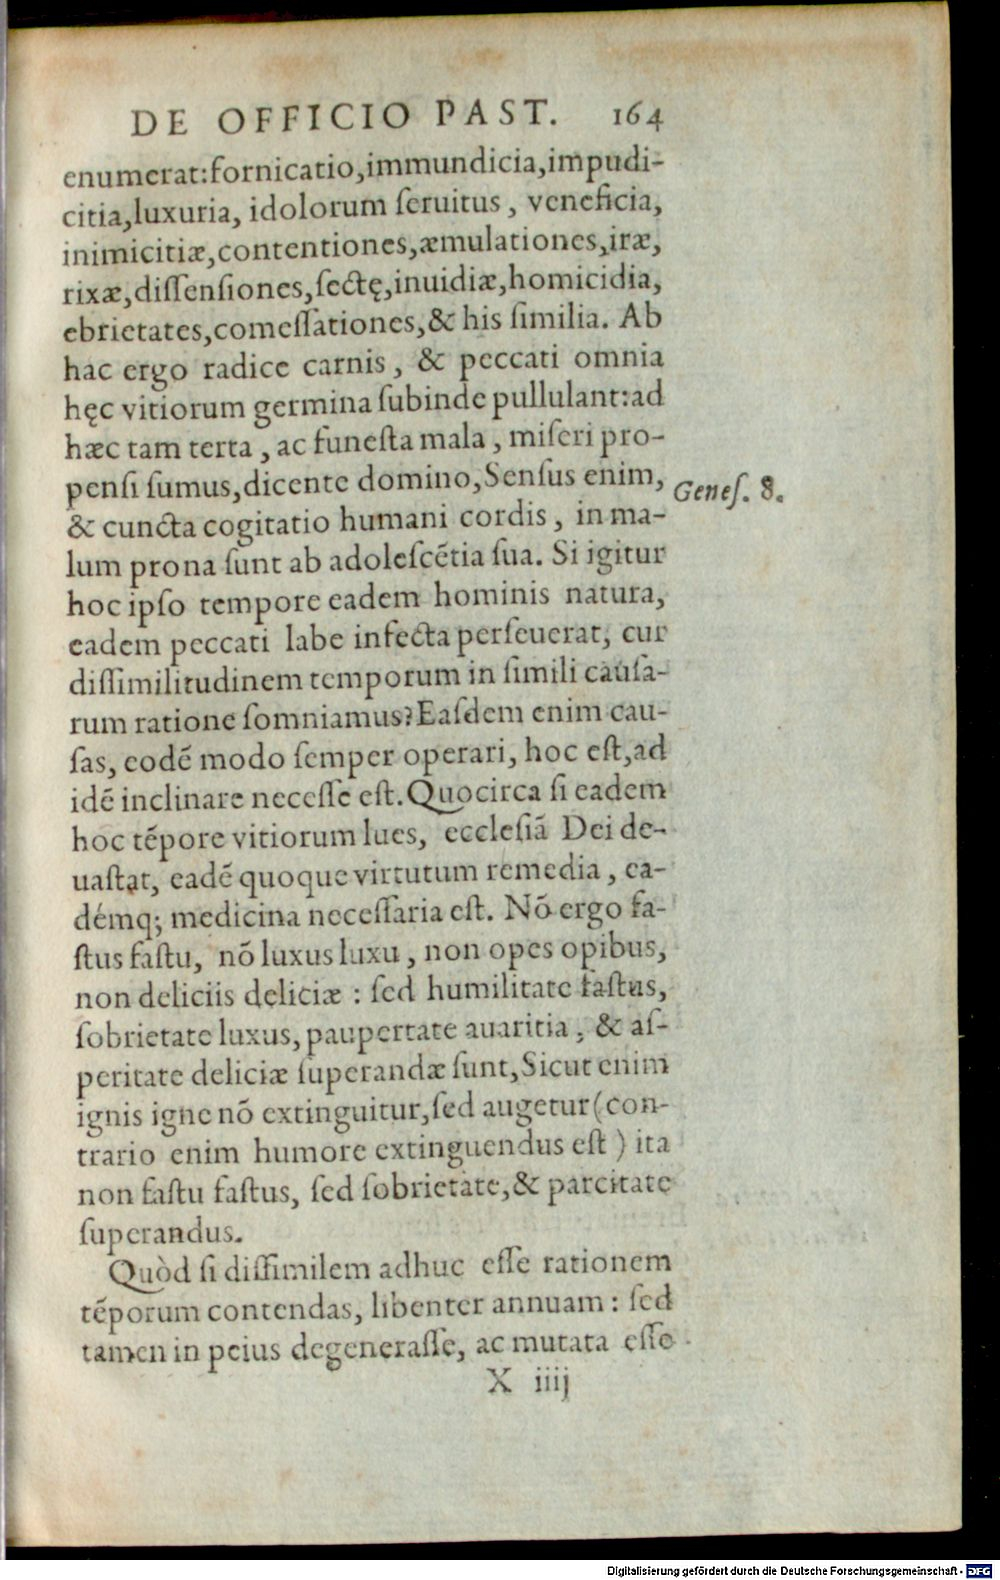 DE OFFICIO PAST. 164
enumerat:fornicatio,immundicia,impudi-
citia,luxuria, idolorum ſeruitus, veneficia,
inimicitiæ,contentiones,æmulationes,iræ,
rixæ,diſſenſiones,ſectę,inuidiæ,homicidia,
ebrietates,comeſſationes,& his ſimilia. Ab
hac ergo radice carnis, & peccati omnia
hęc vitiorum germina ſubinde pullulant:ad
hæc tam tetra, ac funeſta mala, miſeri pro-
penſi ſumus,dicente domino,Senſus enim,
Geneſ. 8.
& cuncta cogitatio humani cordis, in ma-
lum prona ſunt ab adoleſcẽtia ſua. Si igitur
hoc ipſo tempore eadem hominis natura,
eadem peccati labe infecta perſeuerat, cur
diſſimilitudinem temporum in ſimili cauſa-
rum ratione ſomniamus?Eaſdem enim cau-
ſas, eodẽ modo ſemper operari, hoc eſt,ad
idẽ inclinare neceſſe eſt.Quocirca ſi eadem
hoc tẽpore vitiorum lues, eccleſiã Dei de-
uaſtat, eadẽ quoque virtutum remedia, ea-
démq; medicina neceſſaria eſt. Nõ ergo fa-
ſtus faſtu, nõ luxus luxu, non opes opibus,
non deliciis deliciæ : ſed humilitate faſtus,
ſobrietate luxus, paupertate auaritia, & aſ-
peritate deliciæ ſuperandæ ſunt,Sicut enim
ignis igne nõ extinguitur,ſed augetur(con-
trario enim humore extinguendus eſt) ita
non faſtu faſtus, ſed ſobrietate,& parcitate
ſuperandus.
Quòd ſi diſſimilem adhuc eſſe rationem
tẽporum contendas, libenter annuam : ſed
tamen in peius degeneraſſe, ac mutata eſſe
X iiij
Digitalisierung gefördert durch die Deutsche Forschungsgemeinschaft - DFG